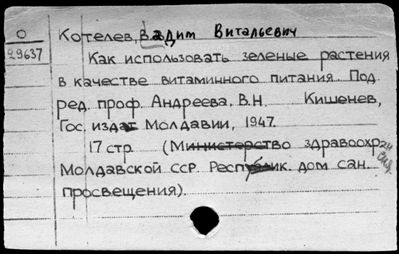 О
29637
Котелев, Вадим Витальевич
Как использовать зеленые растения
в качестве витаминного питания. Под
ред. проф. Андреева, В.Н. Кишенев,
Гос. издат Молдавии, 1947.
17 стр. (Министерство здравоохр
Молдавской ССР. Республик. дом сан.
просвещения).